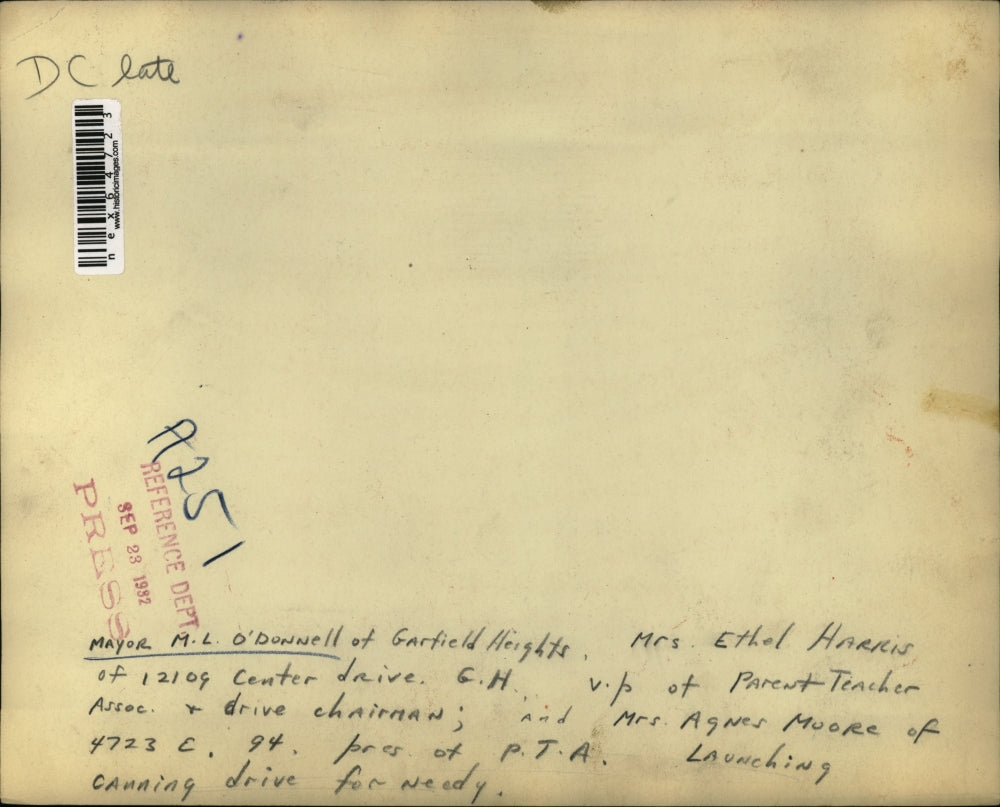 DC late
nex64723
www.historicimages.com
A251
REFERENCE DEPT
SEP 23 1982
PRESS
MAYOR M.L. O'DONNELL of Garfield Heights, Mrs. Ethel HARRIS
of 12109 Center drive. G.H., v.p of Parent-Teacher
Assoc. + drive chairman; and Mrs. Agnes Moore of
4723 E. 94. pres. of P.T.A. Launching
canning drive for needy.